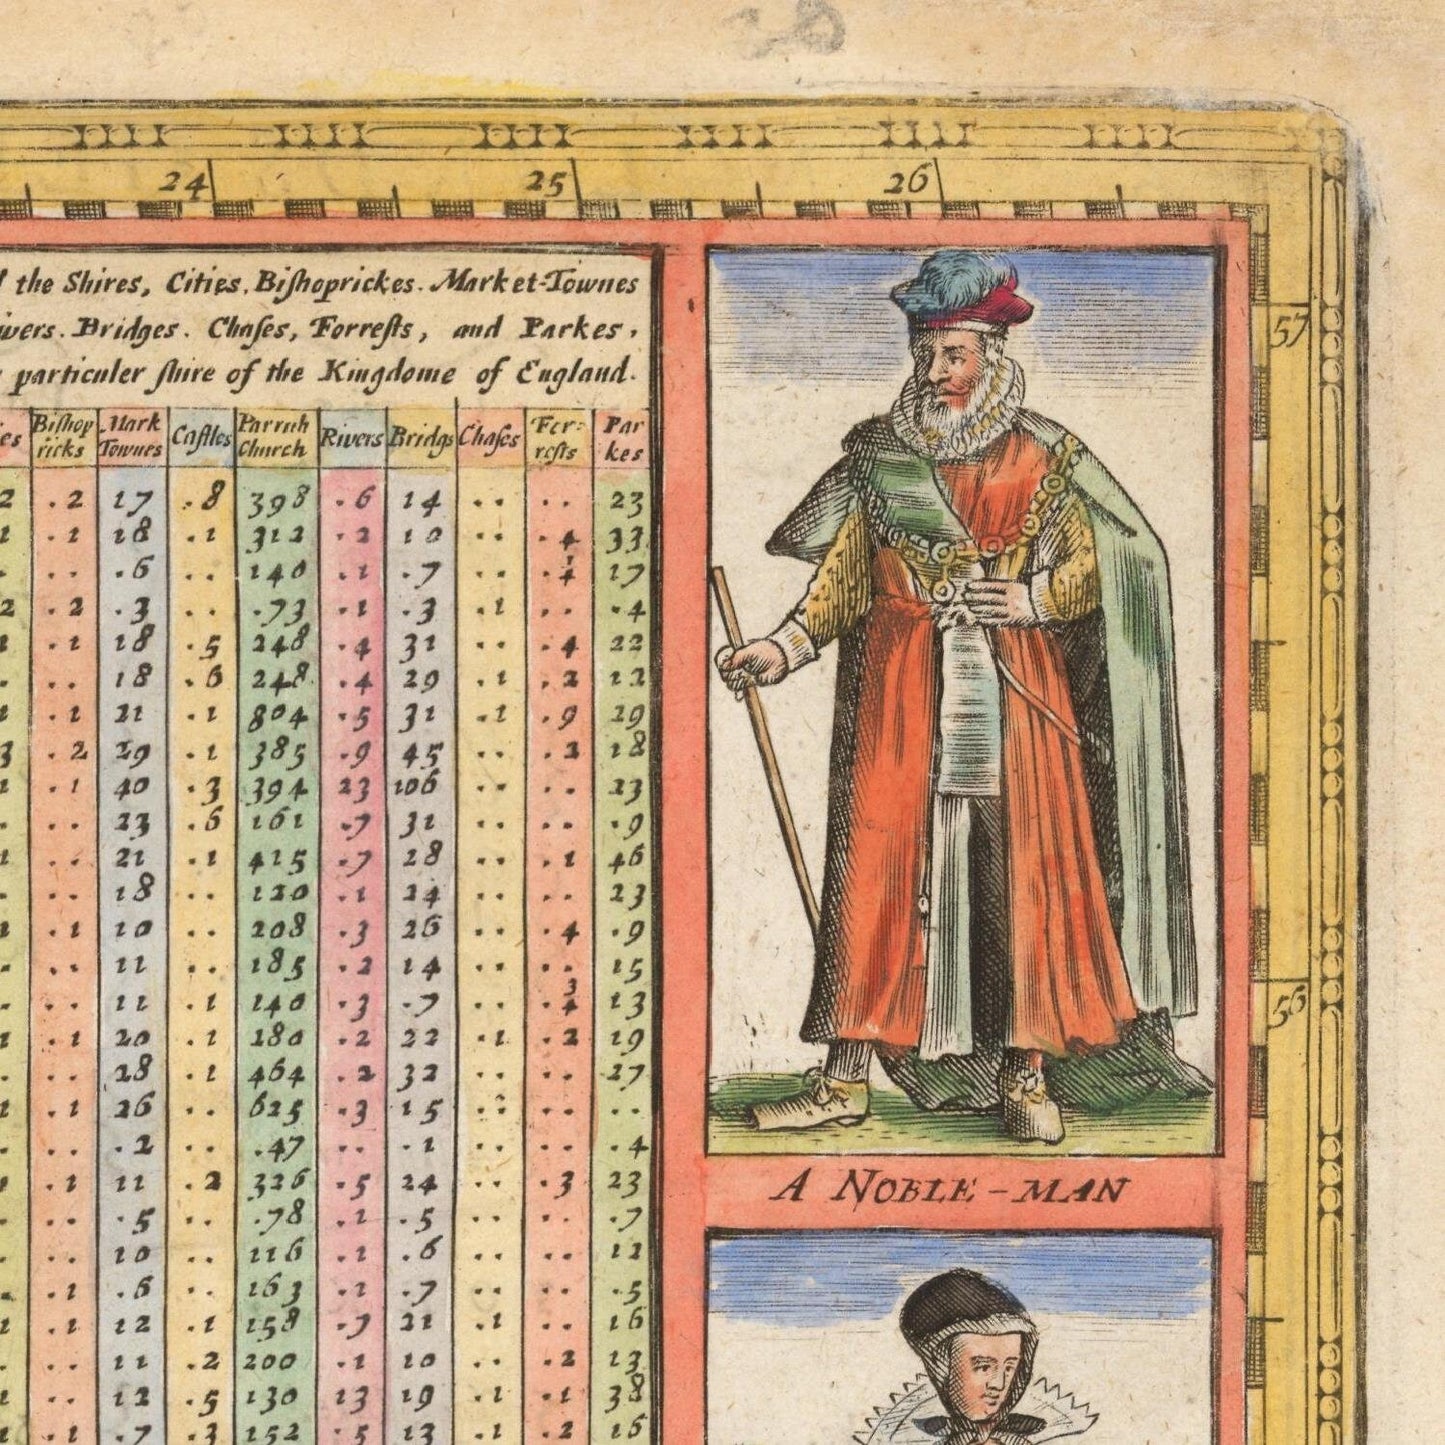 24 25 26
the Shires, Cities. Bishoprickes. Market-Townes
Bridges. Chases, Forrests, and Parkes,
particuler shire of the Kingdome of England.
Bishop ricks Mark Townes Castles Parrish Church Rivers Bridgs Chases For-rests Par kes
2 . 2 17 . 8 398 . 6 14 . . . . 23
1 . 1 18 . 1 312 . 2 10 . . . 4 33
. . . . 6 . . 140 . 1 . 7 . . . 4 17
2 . 2 . 3 . . . 73 . 1 . 3 . 1 . . . 4
1 . 1 18 . 5 248 . 4 31 . . . 4 22
. . . 18 . 6 248 . 4 29 . 1 . 2 12
1 . 1 21 . 1 804 . 5 31 . 1 . 9 29
3 . 2 29 . 1 385 . 9 45 . . . 2 18
1 . 1 40 . 3 394 23 106 . . . . 23
. . . 23 . 6 161 . 7 31 . . . . . 9
1 . . 21 . 1 415 . 7 28 . . . 1 46
. . . 18 . . 120 . 1 24 . . . . 23
1 . 1 10 . . 208 . 3 26 . . . 4 . 9
. . . 11 . . 185 . 2 14 . . . . 15
. . . 11 . 1 140 . 3 . 7 . . 3 4 13
1 . 1 20 . 1 180 . 2 22 . 1 . 2 19
. . . 28 . 1 464 . 2 32 . . . . 27
1 . 1 26 . . 625 . 3 15 . . . . . .
. . . . 2 . . . 47 . . . 1 . . . . . 4
1 . 1 11 . 2 326 . 5 24 . . . 3 23
. . . . 5 . . . 78 . 1 . 5 . . . . . 7
. . . 10 . . 116 . 1 . 6 . . . . 11
. . 1 . 6 . . 163 . 1 . 7 . . . . . 5
1 . 1 12 . 1 158 . 7 21 . 1 . . 16
. . . 11 . 2 200 . 1 10 . . . 2 13
1 . 1 12 . 5 130 13 19 . 1 . 1 38
1 . 1 . 7 . 3 152 . 5 13 . 1 . 2 15
57
56
A NOBLE-MAN